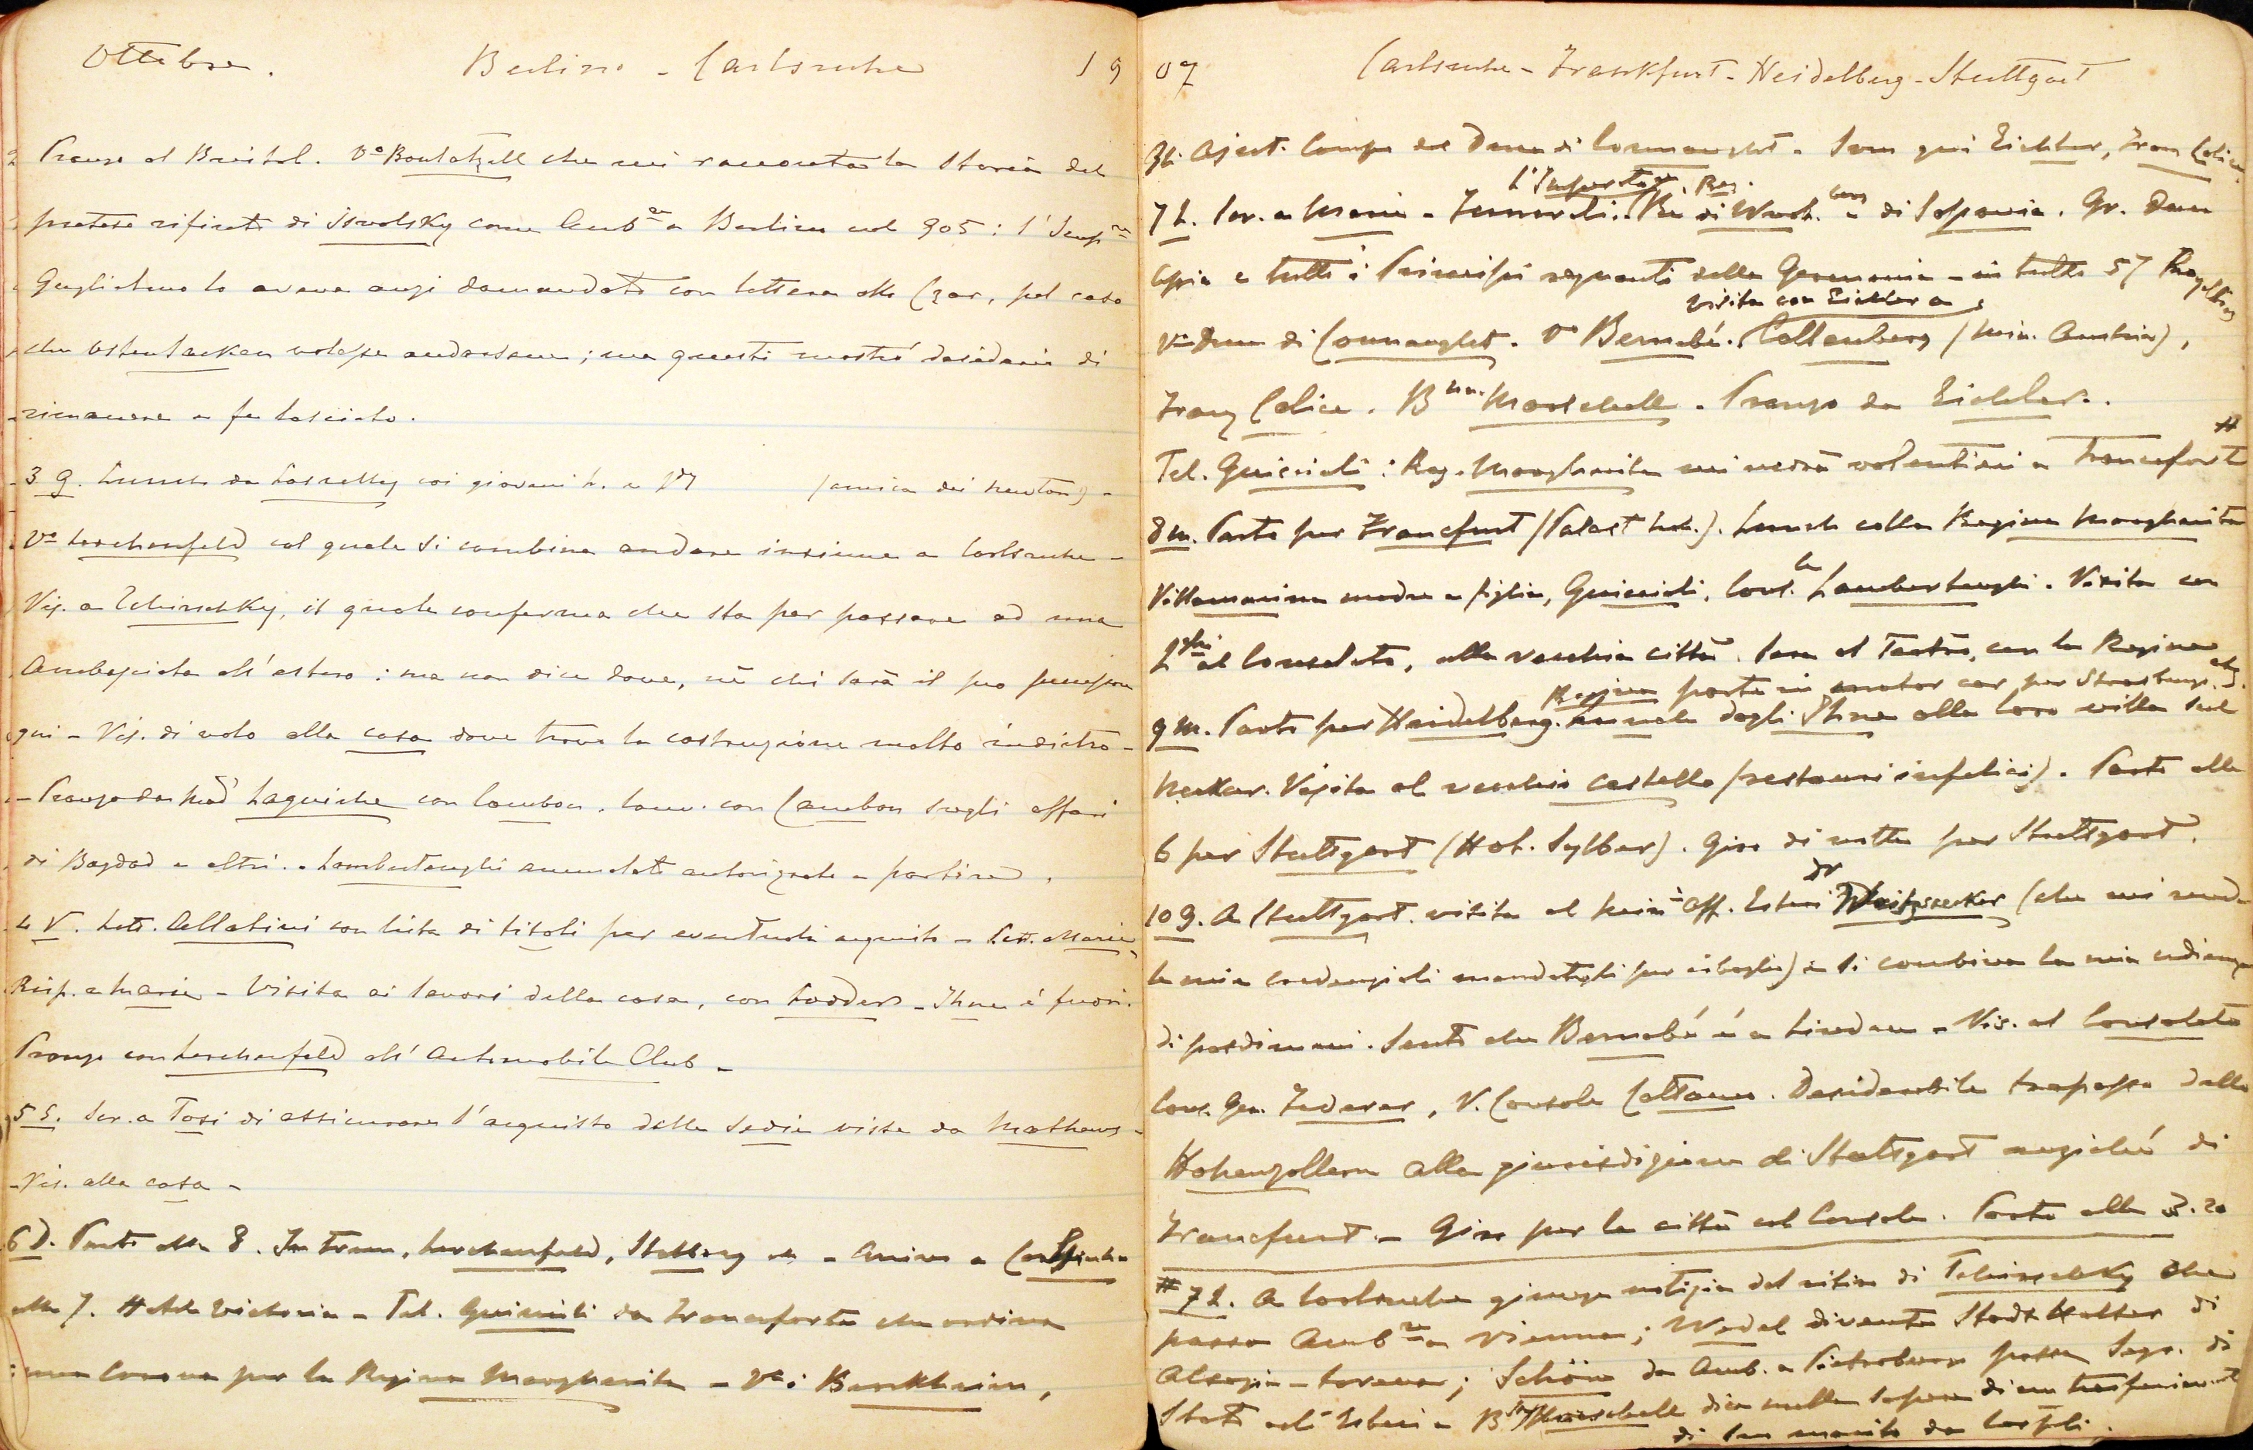 Ottobre. Berlino - Carlsruhe 19
Pranzo al Bristol. Vo Boulatzell che mi racconta la storia del
preteso rifiuto di Isvolsky come Ambre a Berlino nel 905: l'Impre
Guglielmo lo aveva anzi domandato con lettera allo Czar, pel caso
che Osten Sacken volesse andarsene; ma questi mostrò desiderio di
rimanere e fu lasciato.
3 G. Lunch da coi giovani L. e (amica dei Newton) -
Vo Lerchenfeld col quale si combina andare insieme a Carlsruhe -
Vis. a Tchirschky, il quale conferma che sta per passare ad una
Ambasciata all'estero: ma non dice dove, nè chi sarà il suo successore
qui - Vis. di volo alla casa dove trovo la costruzione molto indietro -
- Pranzo da Mad. Laguiche con Cambon. Conv. con Cambon sugli affari
di Bagdad e altri. - Lambertenghi ammalato autorizzato a partire.
4 V. Lett. Allatini con lista di titoli per eventuali acquisti - Lett. Maria
Risp. a Maria - Visita ai lavori della casa, con Lodders - Ihne è fuori.
Pranzo con Lerchenfeld all'Automobile Club -
5 S. Scr. a Tosi di assicurare l'acquisto delle sedie viste da Mathews -
- Vis. alla casa -
6 D. Parto alle 8. In treno, Lerchenfeld, - Arrivo a Carlsruhe
alle 7. Hotel Victoria - Tel. Guiccioli da Francoforte che ordina
una corona per la Regina Margherita - Vo i Berckheim,
07 Carlsruhe - Frankfurt - Heidelberg - Stuttgart
Ajut. Camp. del Duca di Connaught. Sono qui Eichler, Franz Calice.
L'Imperatore. Reg.
7 L. Scr. a Maria - Funerali. Re di Würt. di Sassonia. Gr. Duca
Assia e tutti i Principi regnanti della Germania - in tutto 57
visita con Eichler a
Vo Duca di Connaught. Vo Bernabé. Collenberg (Min. Austria),
Franz Calice. Bnne Marschall. Pranzo da Eichler.
Tel. Guiccioli: Reg. Margherita mi vedrà volentieri a Francoforte #
8 M. Parto per Francfurt (Palast hot.). Lunch colla Regina Margherita
Villamarina madre e figlia, Guiccioli, Cons. le Lambertenghi. Visita con
al Consolato, alla vecchia città. Sera al Teatro, con la Regina
Regina parte in motor car per Strasburgo
9 M. Parto per Heidelberg. dagli Ihne alla loro villa sul
Neckar. Visita al vecchio castello (restauri infelici). Parto alle
6 per Stuttgart (Hot. Sylber). Giro di notte per Stuttgart.
10 G. A Stuttgart. visita al Mino Aff. Esteri Dr Weitzsecker (che mi rende
le mie credenziali mandategli per isbaglio) e si combina la mia udienza
di posdimani. Sento che Bernabé è a Lindau - Vis. al Consolato
Cons. Gen. Federer, V. Console Desiderabile trapasso dello
Hohenzollern alla giurisdizione di Stuttgart anziché di
Francfurt - Giro per la città col Console. Parto alle 3.20
# 7 L. A Carlsruhe giunge notizia del ritiro di Tchirschky che
passa Ambre a Vienna; Wedel diventa Stadthalter di
Alsazia-Lorena; Schön da Amb. a Pietroburgo passa Segr. di
Stato agli Esteri e Bne Marschall dice nulla sapere di un trasferimento
di suo marito da Costpli.